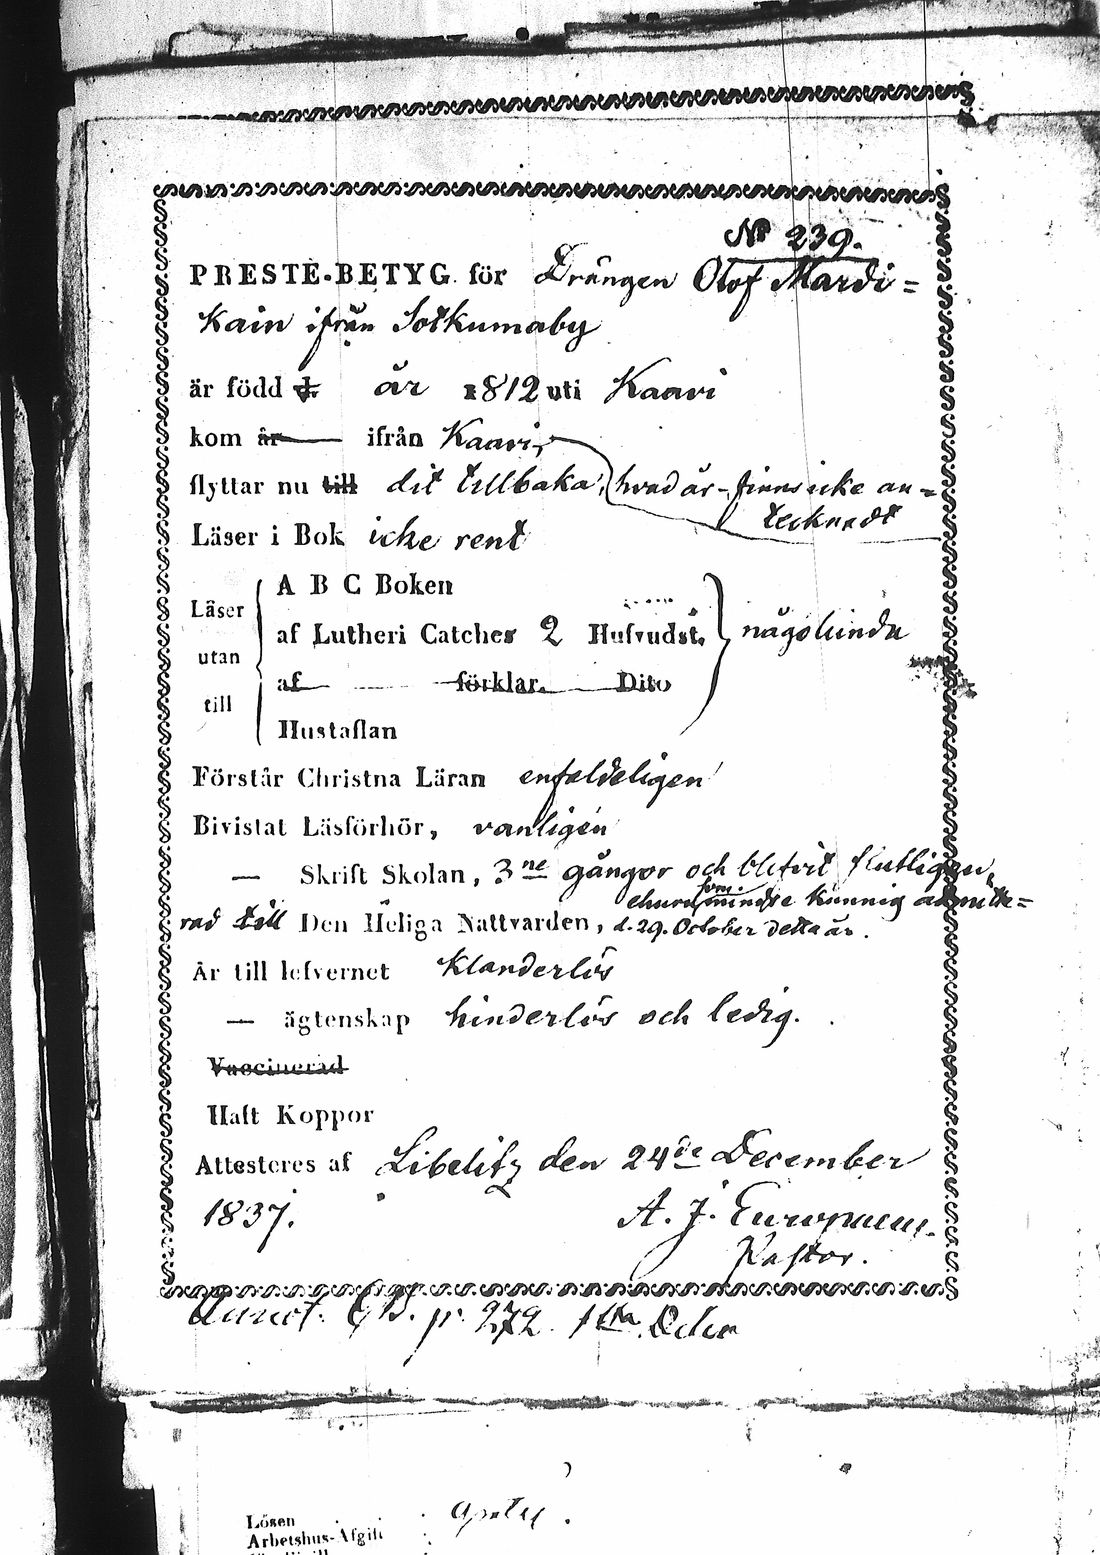 No 239.
PRESTE-BETYG för Drängen Olof Mardi=
kain ifrån Sotkumaby
är född d. år 1812 uti Kaavi
kom år ifrån Kaavi,
flyttar nu till dit tillbaka, hvad år finns icke an=
tecknadt
Läser i Bok icke rent
A B C Boken
Läser
af Lutheri Catches 2 Hufvudst. någolunda
utan
af förklar. Dito
till
Hustaflan
Förstår Christna Läran enfaldeligen
Bivistat Läsförhör, vanligen
— Skrift Skolan, 3ne gångor och blifvit slutligen,
ehuru som mindre kunnig admitte=
rad till Den Heliga Nattvarden, d. 29. October detta år.
Är till lefvernet klanderlös
— ägtenskap hinderlös och ledig.
Vaccinerad
Haft Koppor
Attesteres af Libelitz den 24de December
1837. A. J. Europaeus.
Pastor.
Annot. p. 272.
Lösen
Arbetshus-Afgift